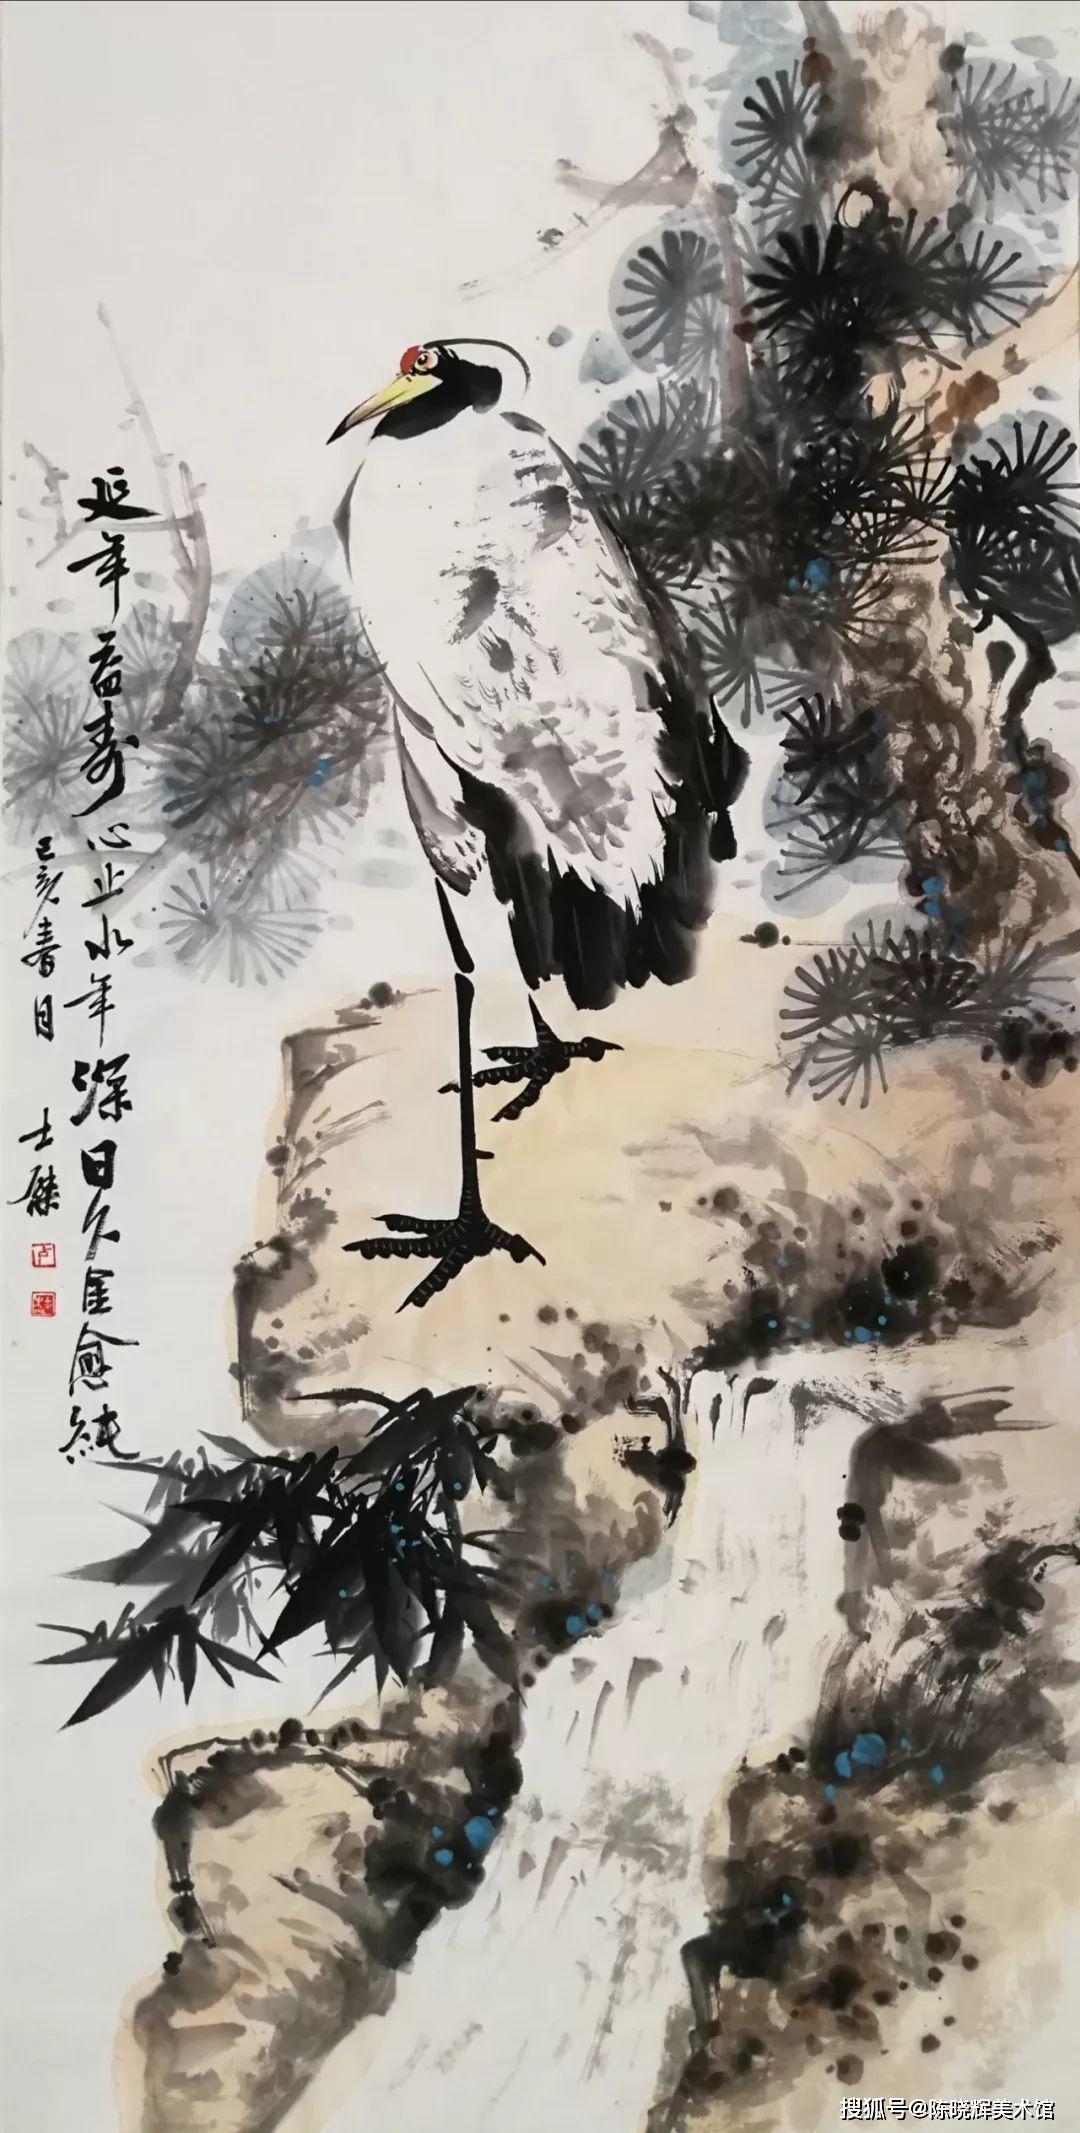 延年益寿心止水年深日久金愈純
己亥春月
士傑
搜狐号@陈晓辉美术馆